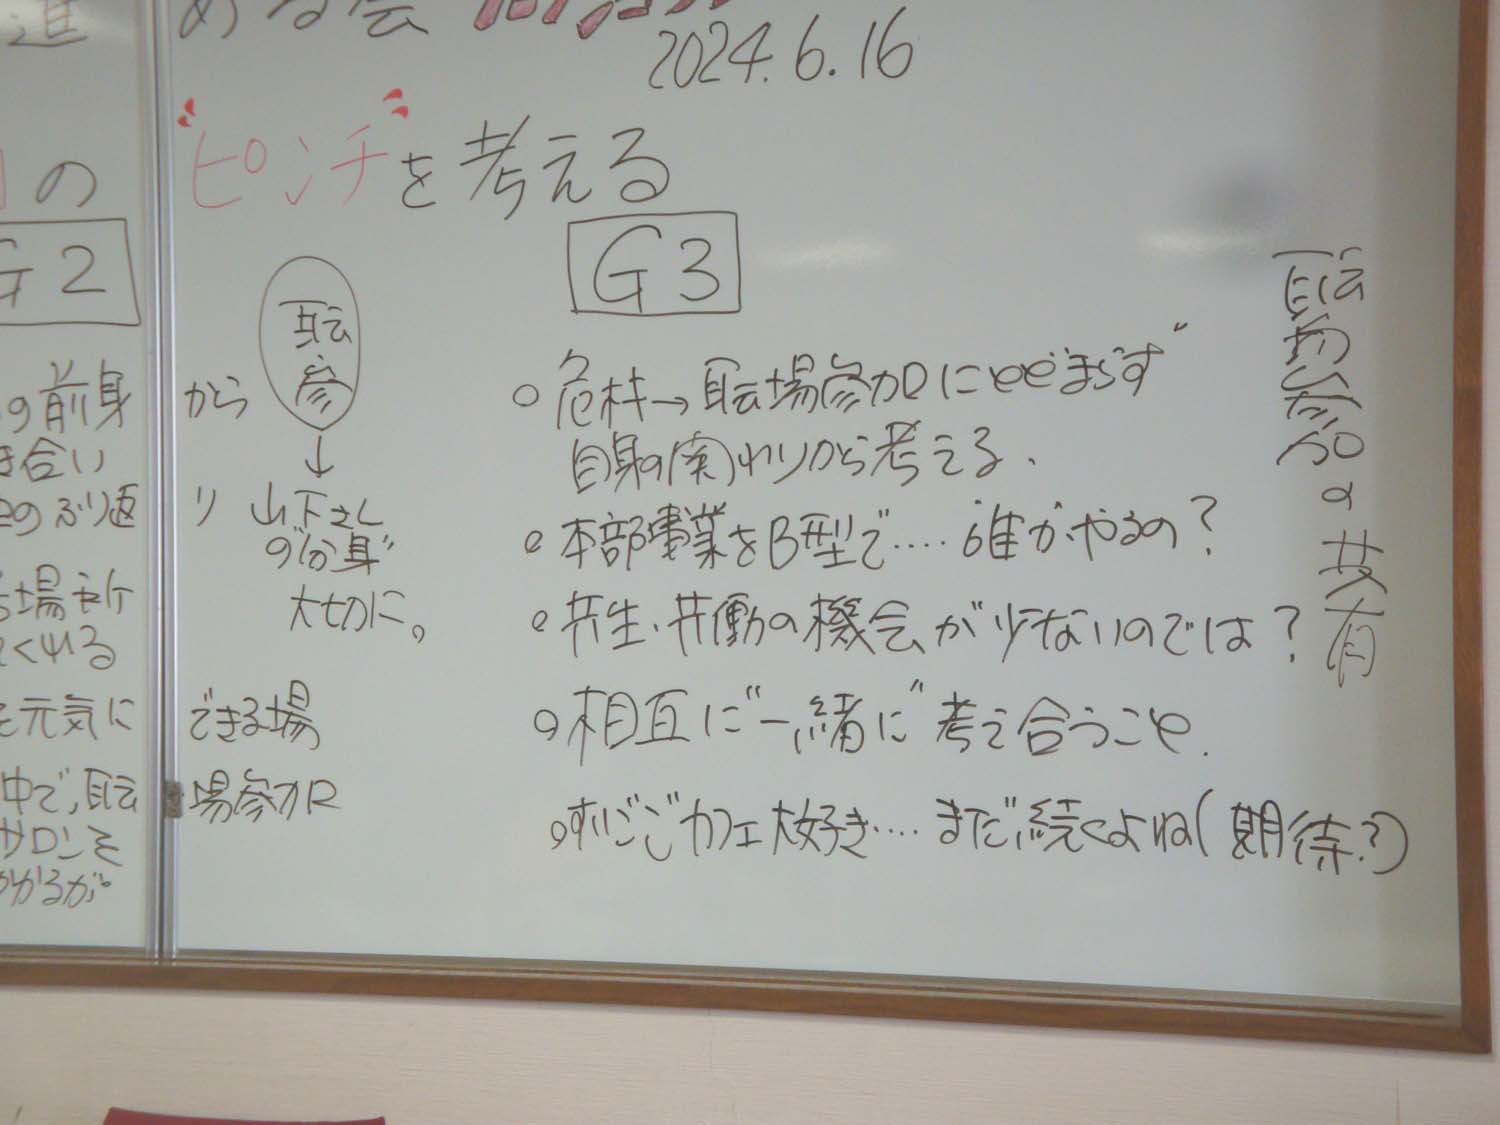 進める会
2024.6.16
の"ピンチ"を考える
G2
の前身から
合い
のふり返り
くれる
元気にできる場
中で、職場参加
サロンを
かかるが
職参
↓
山下さん
の"分身"
大切に。
G3
○危機→職場参加にとどまらず
自身の関わりから考える、
○本部事業をB型で‥‥誰がやるの?
○共生・共働の機会が少ないのでは?
○相互に"一緒に"考え合うこと.
○すいごごカフェ大好き‥‥まだ続くよね(期待?)
職場参加の共有